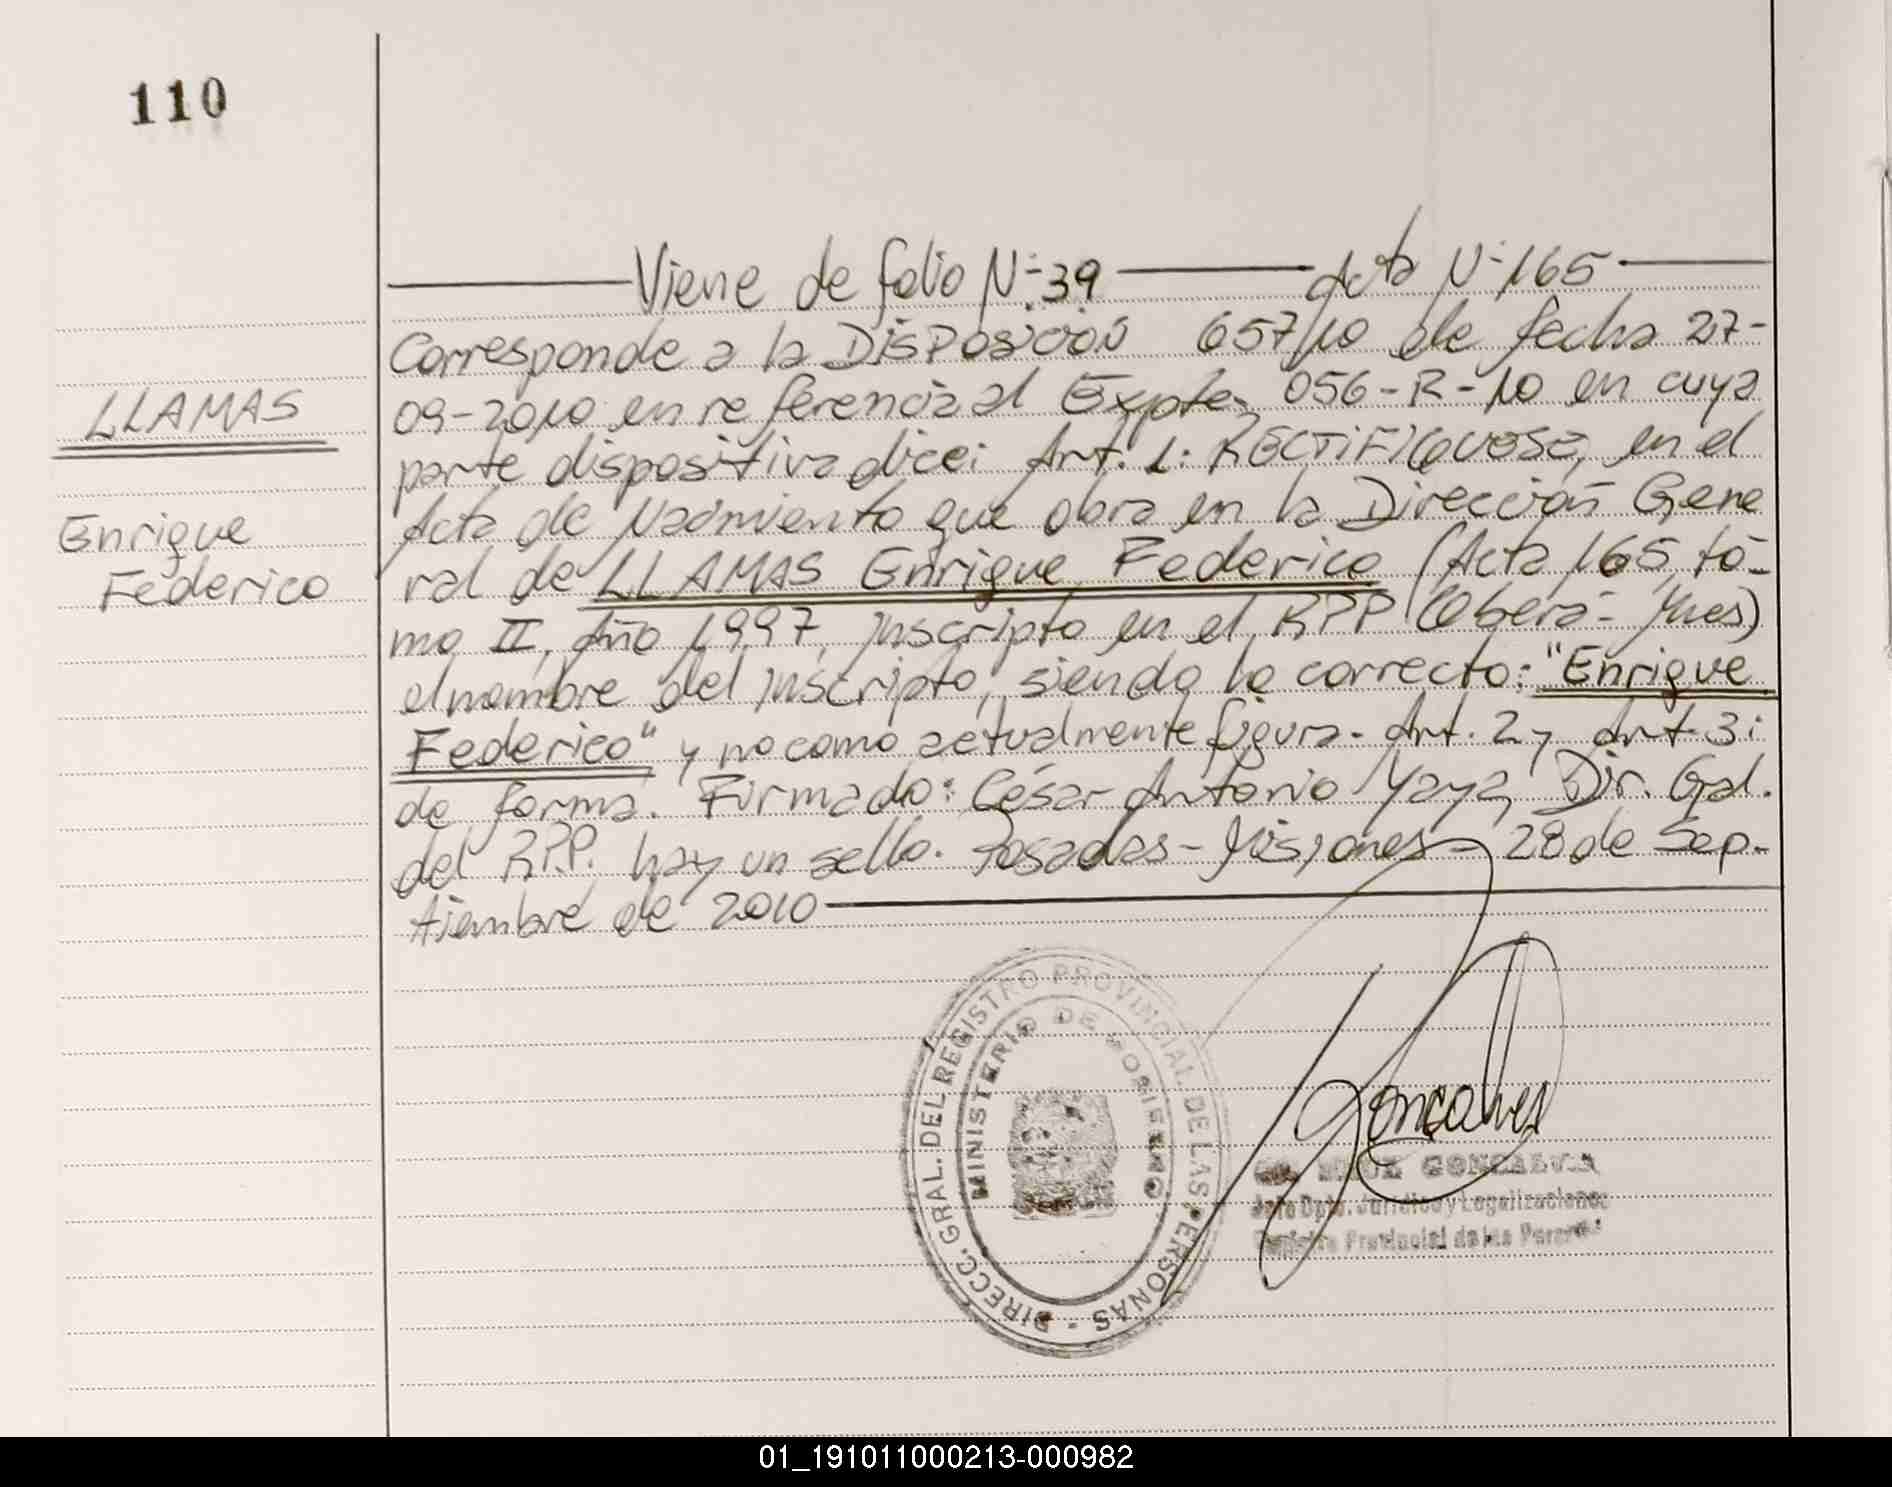 110
Viene de folio N: 39 Acta N: 165
Corresponde a la DISPosición 657/10 de fecha 27-
09-2010 en referencia al Expte. 056-R-10 en cuya
parte dispositiva dice: Art. 1: RECTIFIQUESE, en el
Acta de Nacimiento que obra en la Dirección Gene
ral de LLAMAS Enrique Federico (Acta 165 to-
mo II, Año 1997, inscripto en el RPP (Oberá- Mnes)
el nombre del inscripto, siendo lo correcto: "Enrique
Federico" y no como actualmente figura. Art. 2 y Art. 3:
de forma. Firmado: César Antonio Yaya, Dir. Gral.
del R.P.P. hay un sello. Posadas - Misiones - 28 de Sep-
tiembre de 2010
LLAMAS
Enrique
Federico
DIRECC. GRAL. DEL REGISTRO PROVINCIAL DE LAS PERSONAS -
MINISTERIO DE GOBIERNO
Goncalves
GONCALVES
Jefe Dpto. Jurídico y Legalizaciones
Registro Provincial de las Personas
01_191011000213-000982